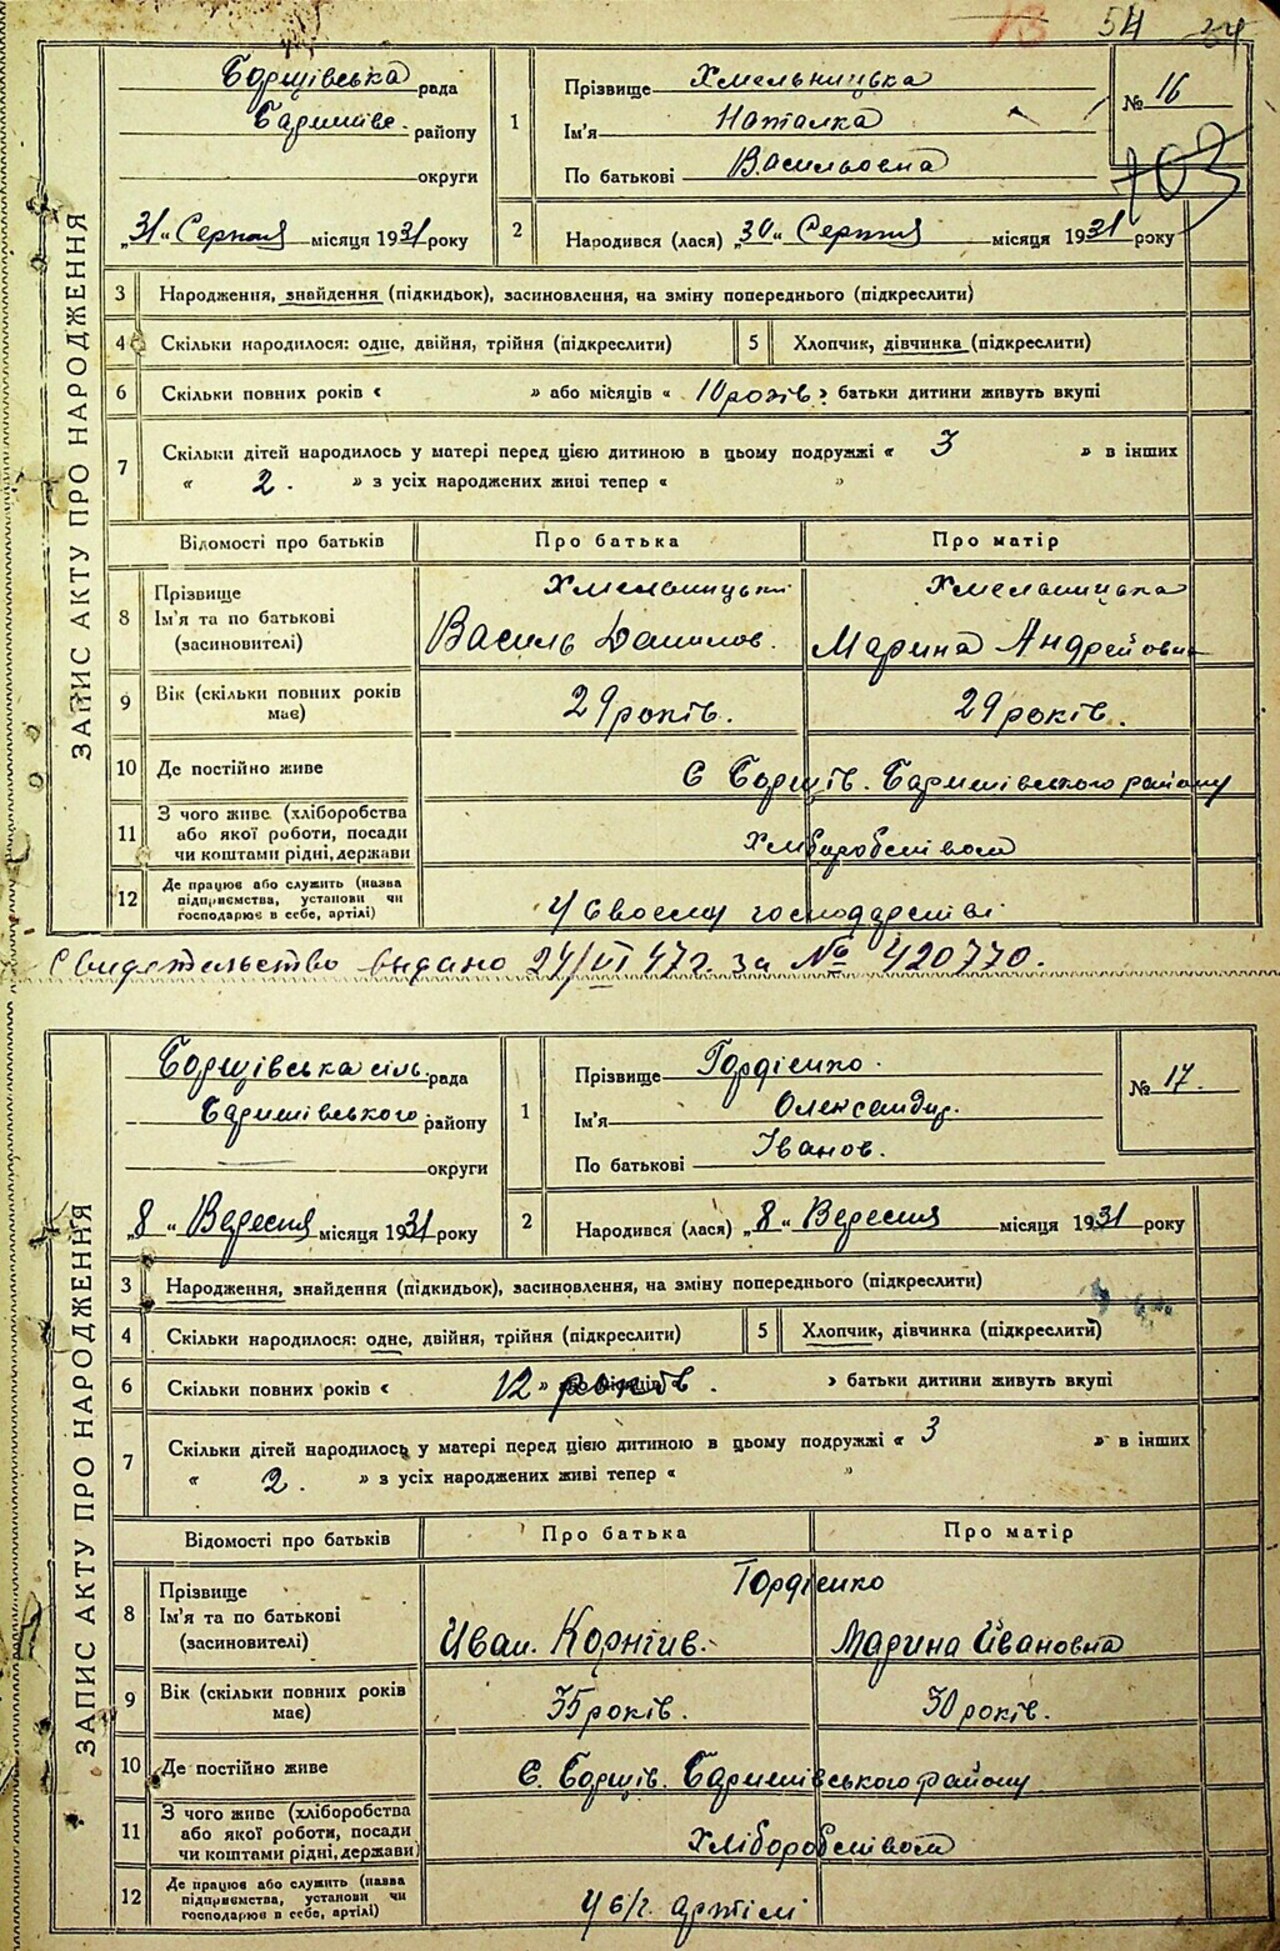 13 54 34
ЗАПИС АКТУ ПРО НАРОДЖЕННЯ
Борщівська рада
Баришівс. району
округи
„31“ Серпня місяця 1931 року
1
Прізвище Хмельницька
Ім'я Наталка
По батькові Васильовна
№ 16
103
2
Народився (лася) „30“ Серпня місяця 1931 року
3 Народження, знайдення (підкидьок), засиновлення, на зміну попереднього (підкреслити)
4 Скільки народилося: одне, двійня, трійня (підкреслити) 5 Хлопчик, дівчинка (підкреслити)
6 Скільки повних років « » або місяців « 10 років » батьки дитини живуть вкупі
7 Скільки дітей народилось у матері перед цією дитиною в цьому подружжі « 3 » в інших
« 2. » з усіх народжених живі тепер « »
Відомості про батьків Про батька Про матір
8 Прізвище
Ім'я та по батькові
(засиновителі)
Хмельницький
Василь Данилов.
Хмельницька
Марина Андрейовна
9 Вік (скільки повних років
має)
29 років. 29 років.
10 Де постійно живе С Борщів. Баришівського району
11 З чого живе (хліборобства
або якої роботи, посади
чи коштами рідні, держави
Хліборобством
12 Де працює або служить (назва
підприємства, установи чи
господарює в себе, артілі)
У Своєму господарстві
Свидетельство выдано 24/VI 47 г. за № 420770.
ЗАПИС АКТУ ПРО НАРОДЖЕННЯ
Борщівська сіль. рада
Баришівського району
округи
„8“ Вересня місяця 1931 року
1
Прізвище Гордієнко.
Ім'я Олександр.
По батькові Іванов.
№ 17.
2
Народився (лася) „8“ Вересня місяця 1931 року
3 Народження, знайдення (підкидьок), засиновлення, на зміну попереднього (підкреслити)
4 Скільки народилося: одне, двійня, трійня (підкреслити) 5 Хлопчик, дівчинка (підкреслити)
6 Скільки повних років « 12 » років. » батьки дитини живуть вкупі
7 Скільки дітей народилось у матері перед цією дитиною в цьому подружжі « 3 » в інших
« 2. » з усіх народжених живі тепер « »
Відомості про батьків Про батька Про матір
8 Прізвище
Ім'я та по батькові
(засиновителі)
Гордієнко
Иван. Корніив. Марина Ивановна
9 Вік (скільки повних років
має)
35 років. 30 років.
10 Де постійно живе С. Борщів. Баришівського району
11 З чого живе (хліборобства
або якої роботи, посади
чи коштами рідні, держави)
Хліборобством
12 Де працює або служить (назва
підприємства, установи чи
господарює в себе, артілі)
У с/г. артілі